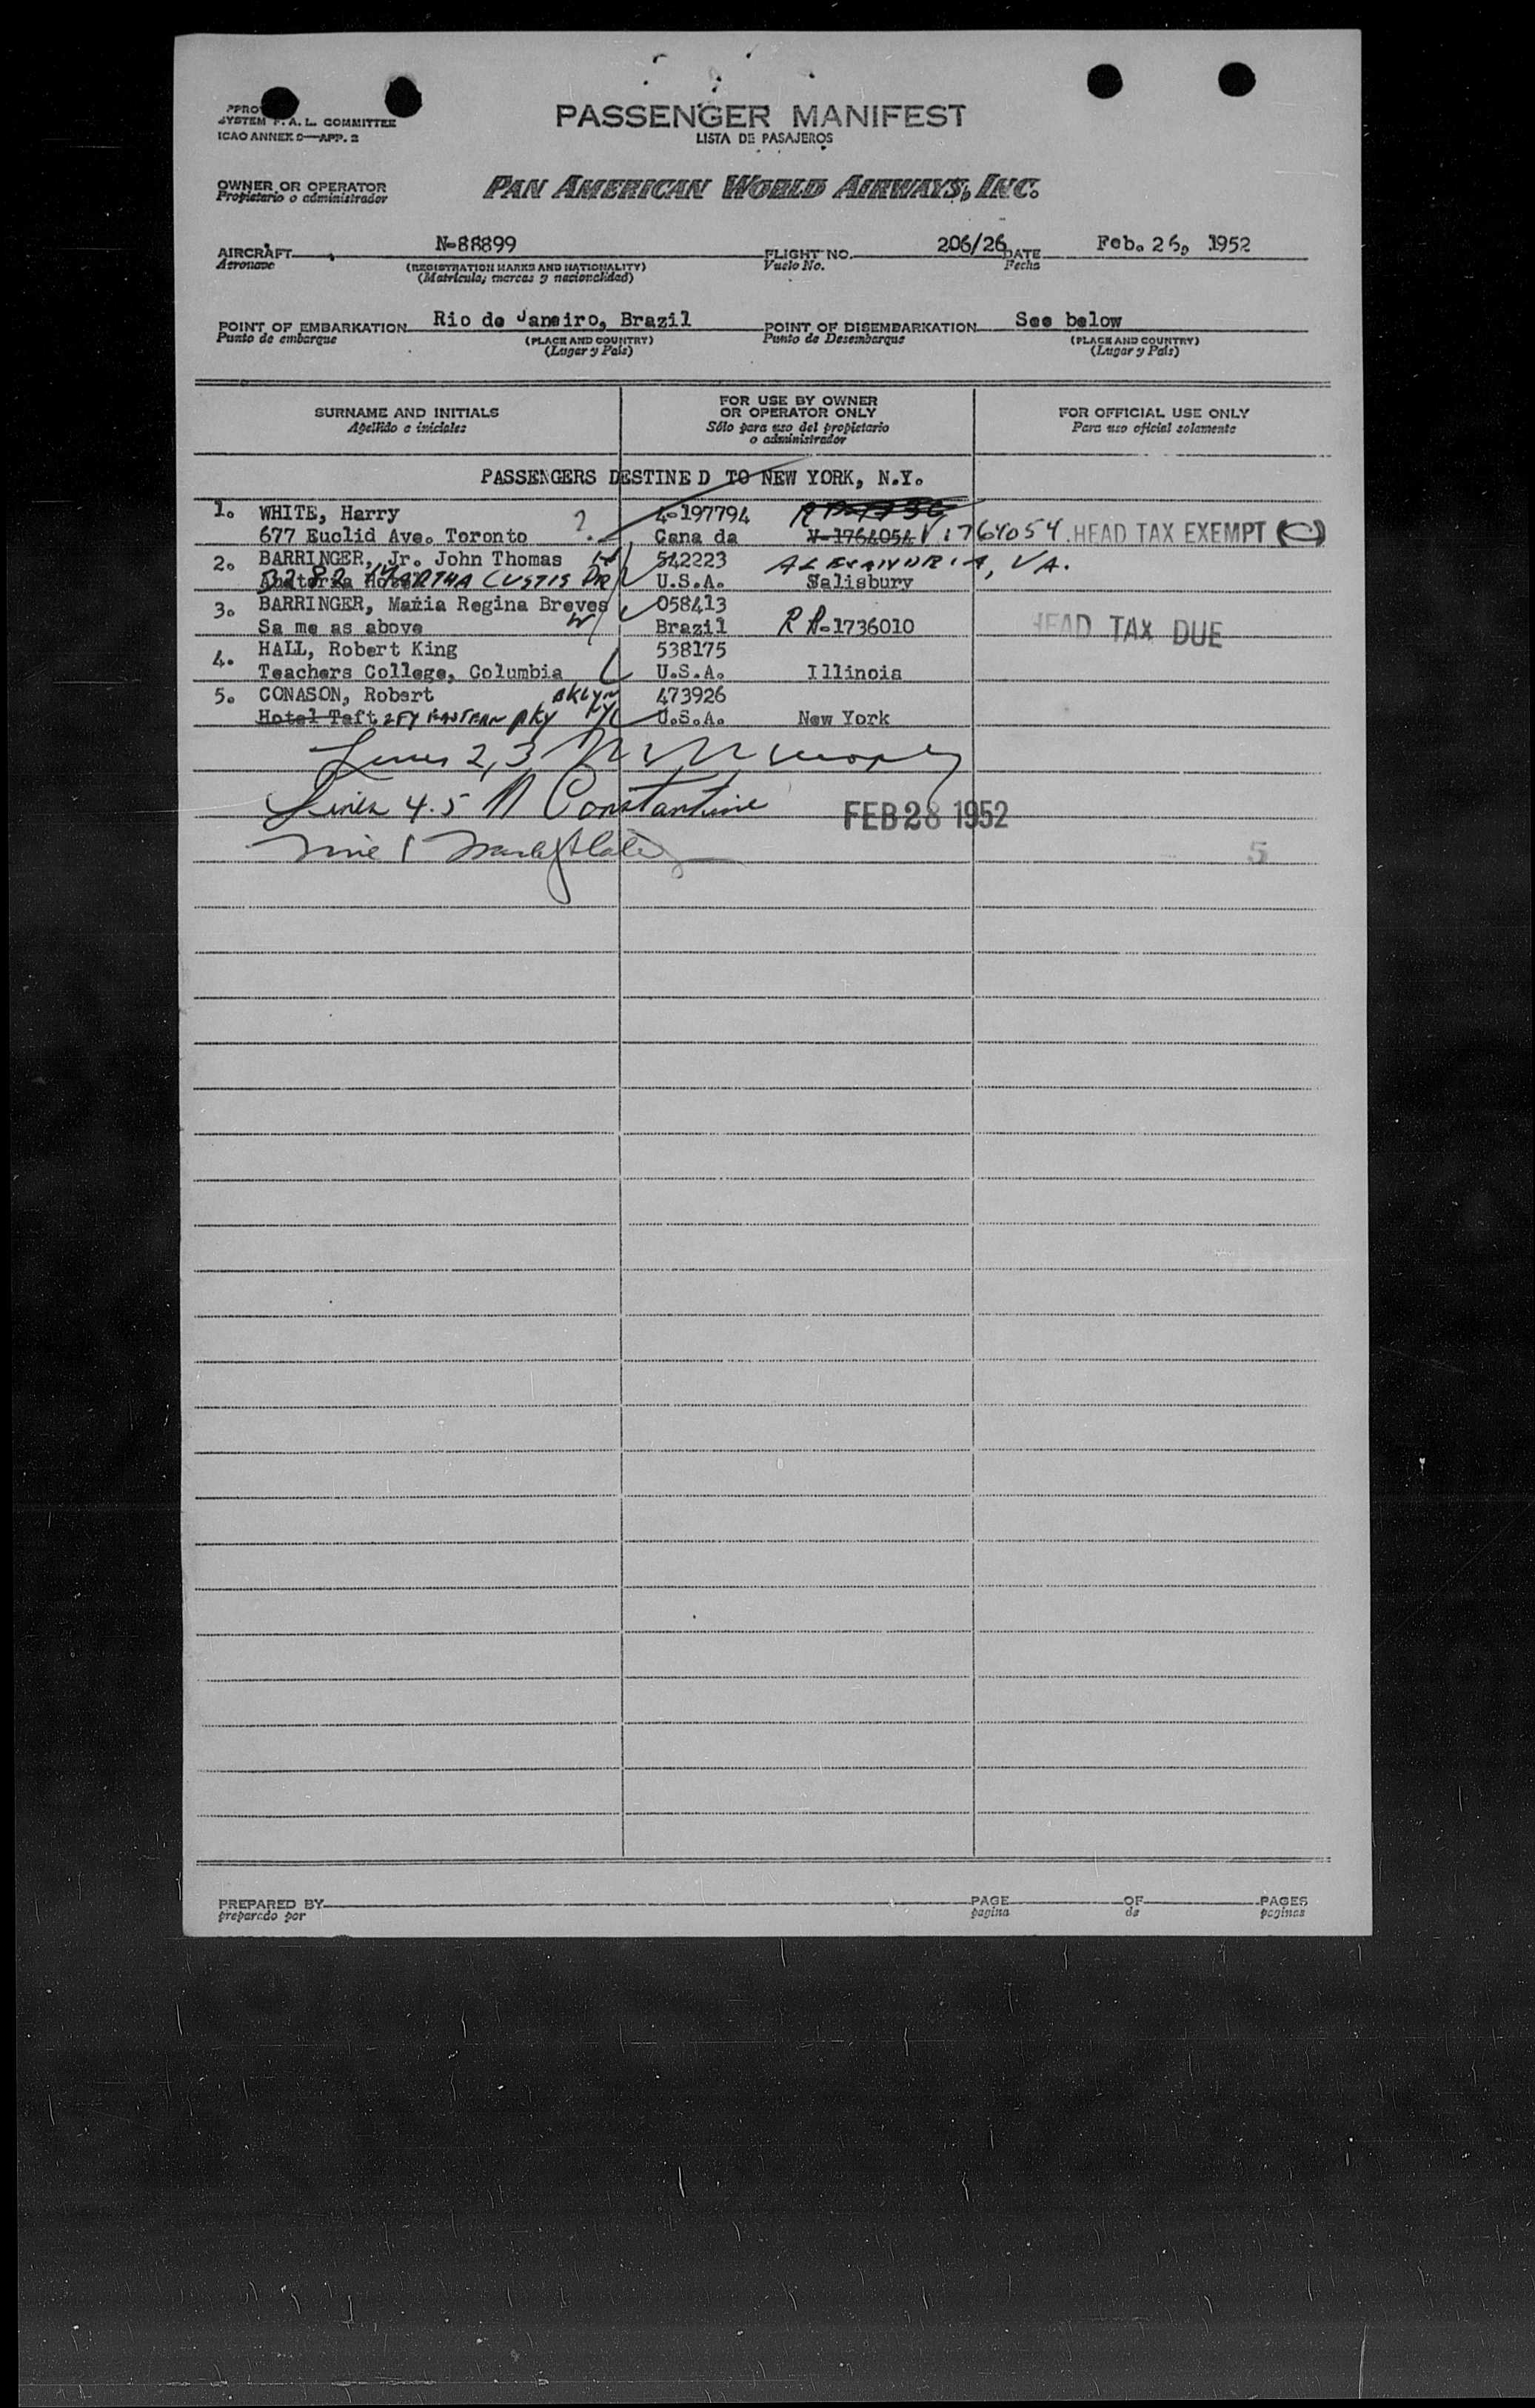 PASSENGER MANIFEST
LISTA DE PASAJEROS
SYSTEM F.A.L. COMMITTEE
ICAO ANNEX 9—APP. 2
OWNER OR OPERATOR
Propietario o administrador
PAN AMERICAN WORLD AIRWAYS, INC.
AIRCRAFT N-88899 FLIGHT NO. 206/26 DATE Feb. 26, 1952
Aeronave (REGISTRATION MARKS AND NATIONALITY) Vuelo No. Fecha
(Matrícula, marcas y nacionalidad)
POINT OF EMBARKATION Rio de Janeiro, Brazil POINT OF DISEMBARKATION See below
Punto de embarque (PLACE AND COUNTRY) Punto de Desembarque (PLACE AND COUNTRY)
(Lugar y País) (Lugar y País)
SURNAME AND INITIALS FOR USE BY OWNER OR OPERATOR ONLY FOR OFFICIAL USE ONLY
Apellido e iniciales Sólo para uso del propietario o administrador Para uso oficial solamente
PASSENGERS DESTINE D TO NEW YORK, N.Y.
1. WHITE, Harry ? 4-197794
677 Euclid Ave. Toronto Cana da V-1764054 V1764054 HEAD TAX EXEMPT (C)
2. BARRINGER, Jr. John Thomas 542223 ALEXANDRIA, VA.
3282 MARTHA CUSTIS DR U.S.A. Salisbury
3. BARRINGER, Maria Regina Breves 058413
Sa me as above Brazil RP-1736010 HEAD TAX DUE
4. HALL, Robert King 538175
Teachers College, Columbia U.S.A. Illinois
5. CONASON, Robert BKLYN 473926
Hotel Taft EASTERN PKY NY U.S.A. New York
Lines 2, 3
Lines 4.5 Constantine FEB 28 1952
Line 1 5
PREPARED BY PAGE OF PAGES
preparado por pagina de paginas